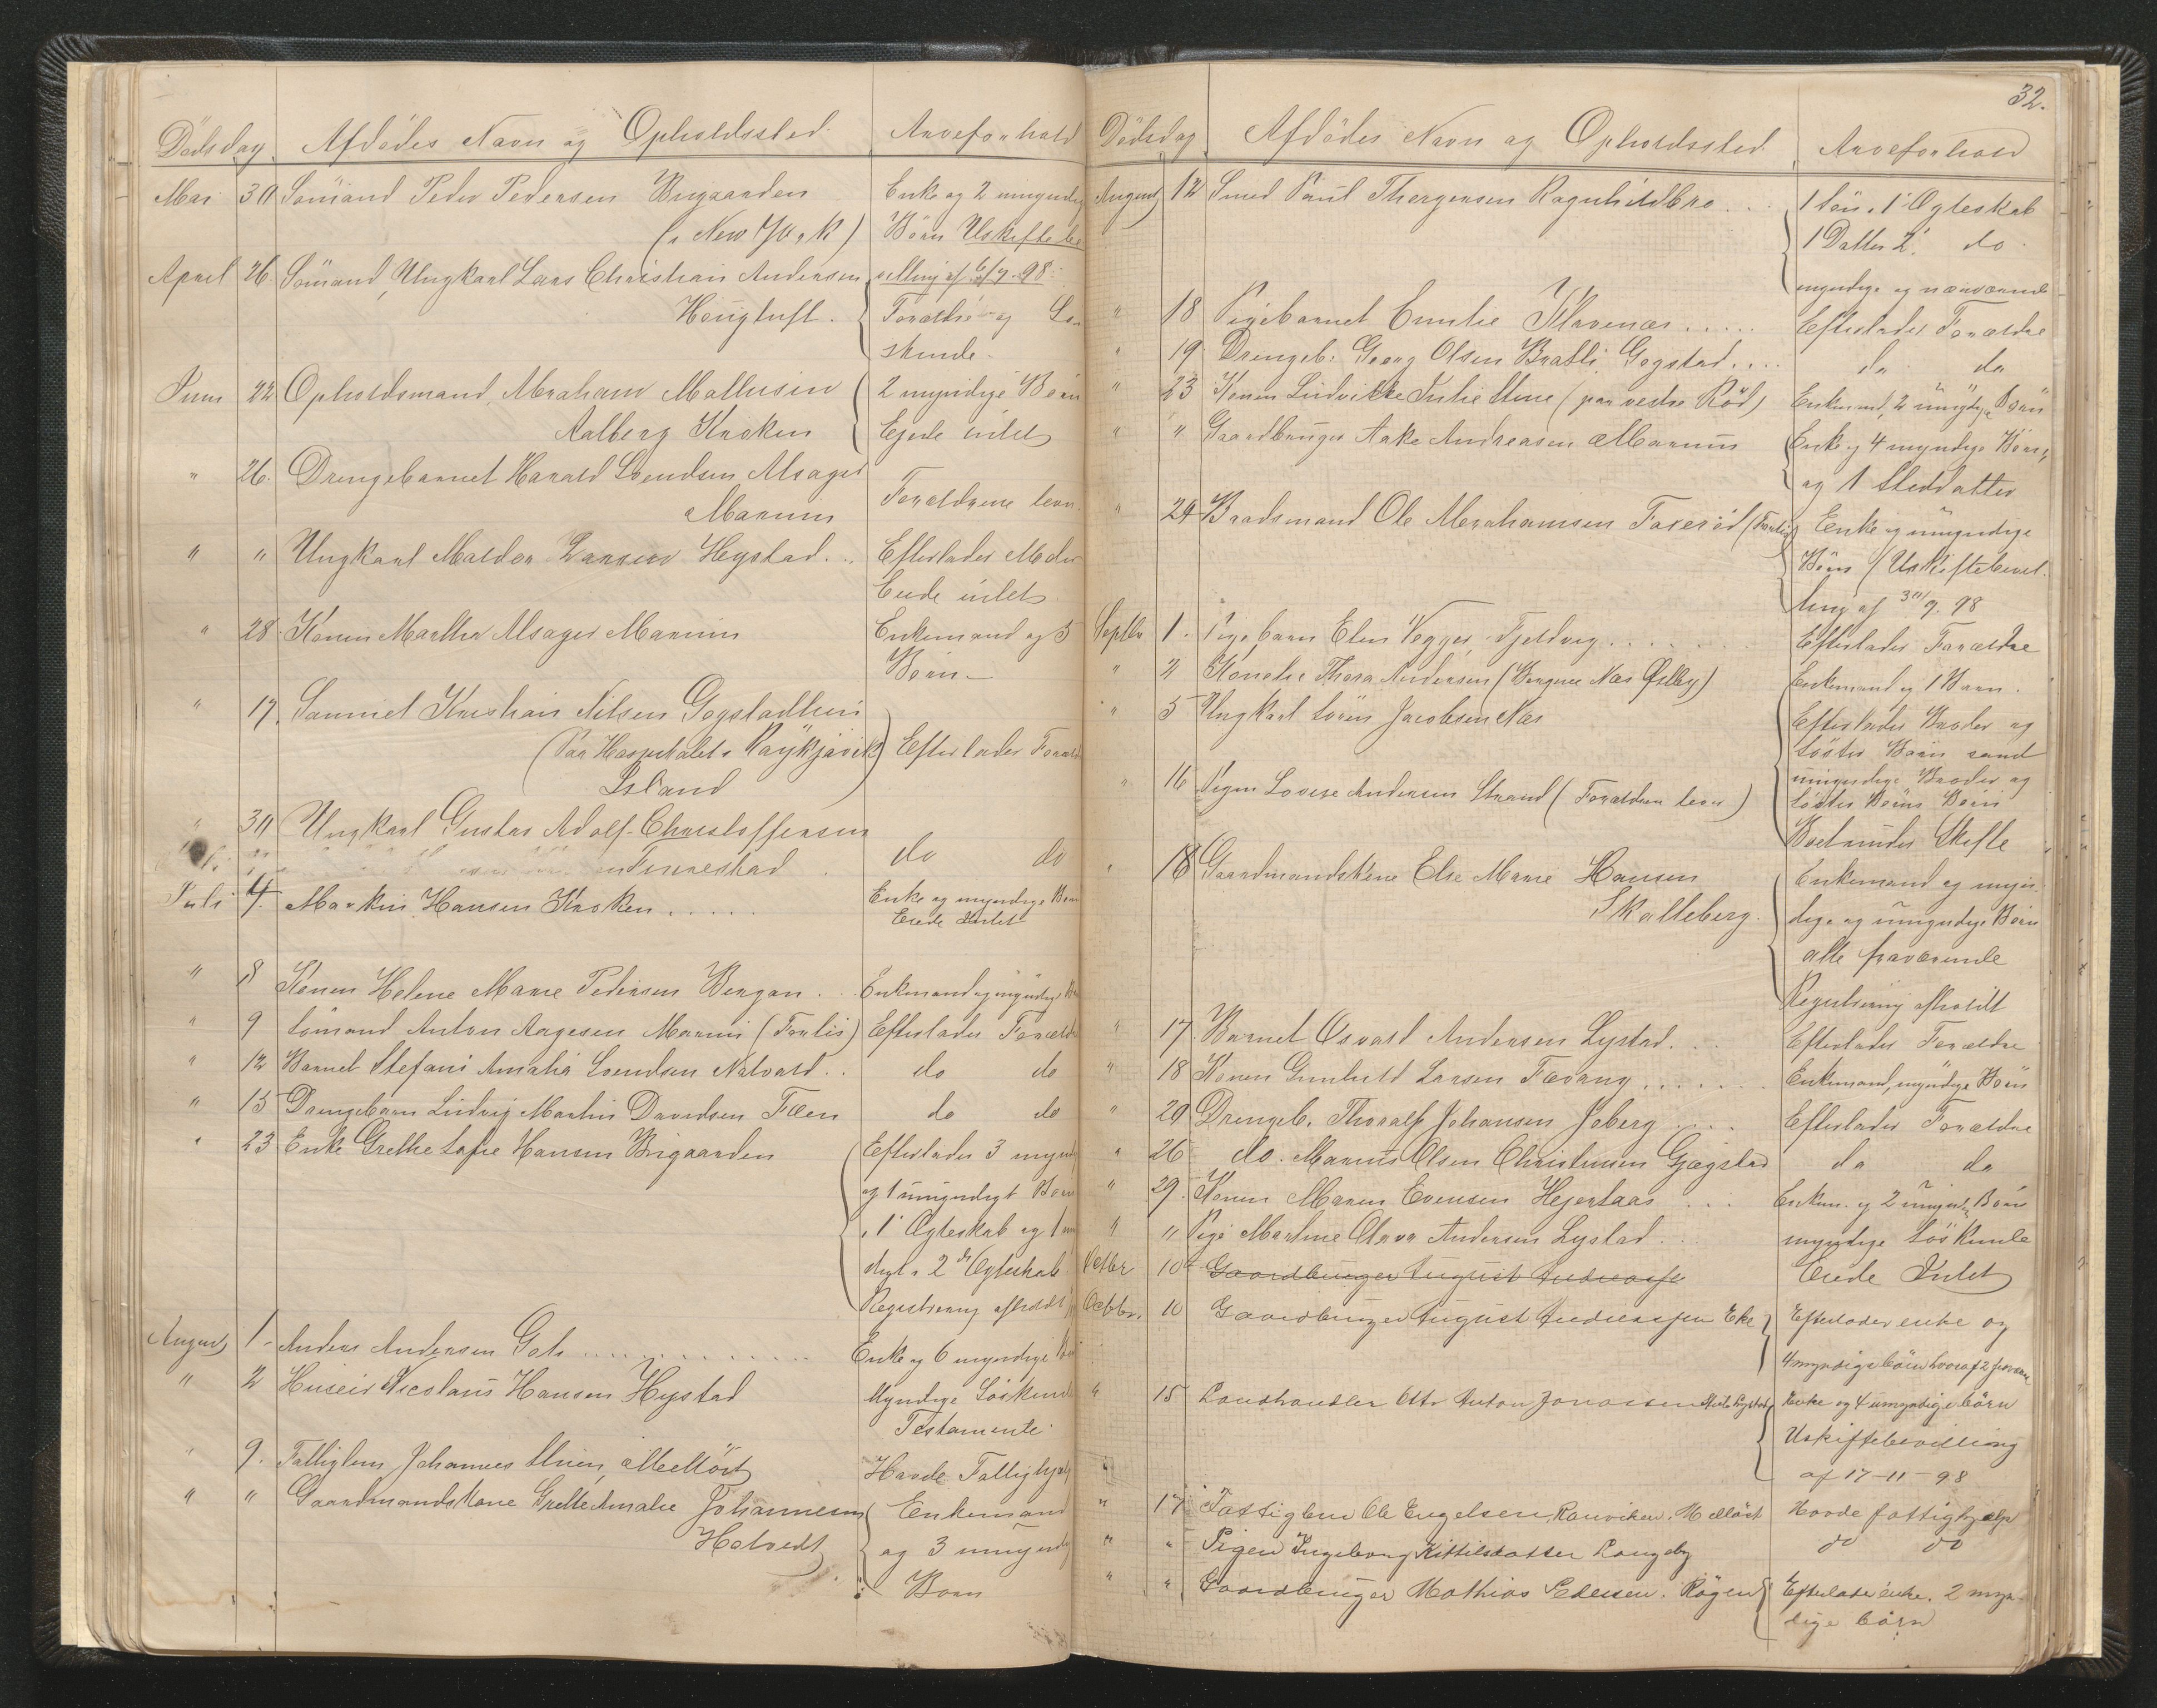 Dödsdag Afdödes Navn og Opholdssted. Arveforhold
Mai 30 Sömand Peder Pedersen Brygaarden Enke og 2 umyndig
(i New York) Börn Uskiftebe
April 26. Sömand, Ungkarl Lars Christian Andersen villing af 6/7-98.
Hougtuft. Forældre og Sö-
skende.
Juni 22 Opholdsmand, Abraham Mathisen 2 myndige Börn
Aalberg Kroken Ejede intet
" 26. Drengebarnet Harald Svendsen Alsager
Marum Forældrene lever
" " Ungkarl Maldor Larsen Hystad. .. Efterlader Moder
Eiede intet
" 28 Konen Marthea Alsager Marum Enkemand og 5
Börn
" 17. Samuel Kristian Nilsen Gogstad
(Paa Hospitalet i Raykjavik Efterlader Foræld
Island)
" 30 Ungkarl Gustav Adolf Christoffersen
Finnestad. do do
Juli 4. Martin Hansen Kroken..... Enke og myndige Börn
Eiede Intet
" 8 Konen Helene Marie Pedersen Bergan. .. Enkemand og myndige
" 9 Sömand Anton Aagesen Marum (Forlis) Efterlader Foræld
" 12 Barnet Stefani Amalia Svendsen Nalvald.. do do
" 15 Drengebarn Ludvig Martin Davidsen Fæen do do
" 23 Enke Grethe Sofie Hansen Brigaarden Efterlader 3 mynd
og 1 umyndigt Barn
i 1 Ægteskab og 1
digt i 2det Ægteskab.
Registrering afholdt
August 1. Anders Andersen Gate ............ Enke og 6 myndige
" 2 Huseier Nicolaus Hansen Hystad Myndige Söskend
Testamente.
" 9. Fattiglem Johannes Mellöst Havde Fattighjælp
" " Gaardmandskone Grethe Amalie Johannesen Enkemand
Hotvedt og 3 umynd
Börn
32.
Dödsdag Afdödes Navn og Opholdssted. Arveforhold
August 12 Smed Poul Thorgersen Ragnhildbro... 1 Sön i 1 Ægteskab
1 Datter 2. do.
myndige og nærværende
" 18 Pigebarnet Emilie Klavenæs..... Efterlader Forældre
" 19 Drengeb. Georg Olsen Bratli, Gogstad.... do do
" 23 Konen Ludvikke Julie (paa vestre Röd) Enkemand, 2 umyndige Börn
" " Gaardbruger Aake Andreasen Marum Enke og 4 myndige Börn,
og 1 Steddatter
" 24 Baadsmand Ole Abrahamsen Foxeröd (Forlis) Enke og umyndige
Börn (Uskiftebevil-
ling af 30/9. 98
Septbr 1. Pigebarn Elen Vegger, Fjeldvig....... Efterlader Forældre
" 2 Thora Andersen (Bergene Næs Østby) Enkemand og 1 Barn.
" 5 Ungkarl Sören Jacobsen Næs Efterlader Broder og
Söster Börn samt
umyndige Broder og
" 16 Pigen Lovise Andersen Strand (Forældren lever) Söster Börns Börn
Boet under Skifte
" 18 Gaardmandskone Else Marie Hansen Enkemand og myn-
Skalleberg. dige og umyndige Börn
alle fraværende
Registrering afholdt
" 17 Barnet Osvald Andersen Lystad... Efterlader Forældre
" 18 Konen Gunhild Larsen Fævang....... Enkemand, myndige Börn
" 20 Drengeb. Thoralf Johansen Joberg.... Efterlader Forældre
" 26 do. Marius Olsen Christensen Gjøgstad do do
" 29. Konen Maren Evensen Hejertaas ... Enkem. og 2 umynd. Börn
" " Pige Martine Olava Andersen Lystad... myndige Söskende
Octbr 10 Gaardbruger August Andreasse Eiede Intet
Octbr. 10 Gaardbruger August Andreassen Eke Efterlader enke og
4 myndige börn hvoraf 2
" 15 Landhandler Otto Anton Jonassen Enke og 4 umyndige börn
Uskiftebevilling
af 17-11-98
" 17 Fattiglem Ole Engelsen, Ranviken. Mellöst Havde fattighjælp
" " Pigen Ingeborg Kittilsdatter Langeby do do
" " Gaardbruger Mathias Pedersen. Rögen Efterlader enke. 2 myn-
dige börn